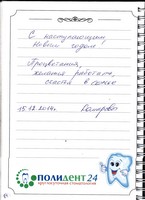 С наступающим
Новым годом
Процветания,
желания работать,
счастья в семье
15.12.2014г.
ПОЛИДЕНТ 24
круглосуточная стоматология